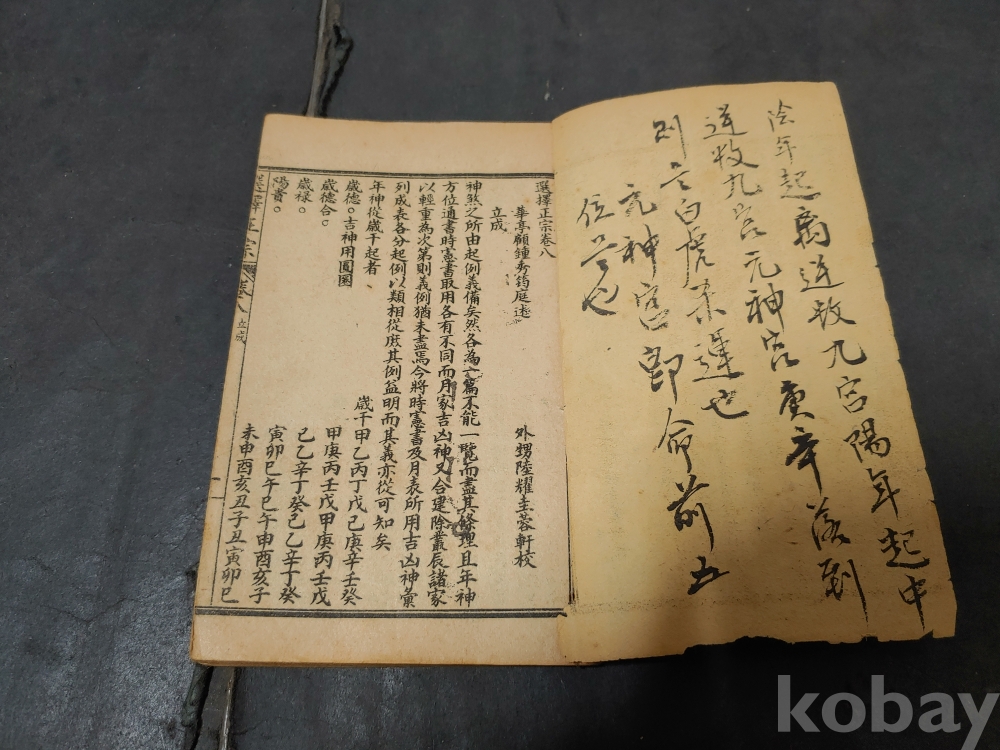 陰年起离逆数九宮陽年起中
逆数九宮元神宮庚辛落到
則是白虎
元神宮即命前五
位是也
選擇正宗卷八
華亭顧鍾秀筠庭述
外甥陸耀圭蓉軒校
立成
神煞之所由起例義備矣然各為一篇不能一覽而盡其條理且年神
方位通書時憲書取用各有不同而月家吉凶神又合建除叢辰諸家
以輕重為次第則義例猶未盡焉今將時憲書及月表所用吉凶神彙
列成表各分起例以類相從庶其例益明而其義亦從可知矣
年神從歲干起者
歲干甲乙丙丁戊己庚辛壬癸
歲德○吉神用圓圈
甲庚丙壬戊甲庚丙壬戊
歲德合○
己乙辛丁癸己乙辛丁癸
歲祿○
寅卯巳午巳午申酉亥子
陽貴○
未申酉亥丑子丑寅卯巳
選擇正宗
卷八
立成
一
kobay